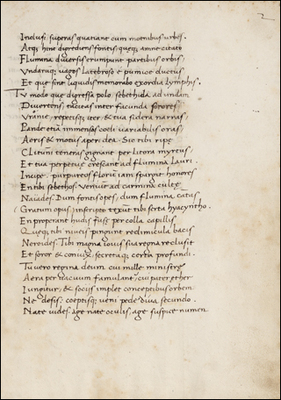 2
Inclusi superas quatiant cum motibus urbes.
Atq; hinc digrediens fontis quæq; amne citato
Flumina diversis erumpunt partibus orbis,
Undasq; vagos latebroso e pumice ductus
Et que sint liquidis memorabo exordia lymphis.
Tu modo que digressa polo sebethida ad undam
Divertens, tacitas inter facunda sorores
Uranie, repetisq; iter, & tua sidera narras
Pande etiam immensas coeli variabilis oras,
Aeris & motus aperi dea. Sic tibi ripe
Clitumni teneras pignant per litora myrtus,
Et tua perpetuus crescant ad flumina Lauri.
Incipe. purpureos florum iam spargit honores
En tibi sebethos. Venit ad carmina cultę
Naiades. Dum fontis opes, dum fluminis cætus
Gratum opus, inscripto texunt tibi serta hyacyntho.
En properant hudis fuse per colla capillis
Quæq; tibi niveis pingunt redimicula baccis
Nereides. Tibi magna tovis sua regna reclusit
Et soror & coniux, secretaq; certa profundi.
Tu vero regina deum cui mille ministre
Aera per vacuum famulant, cui pater ether
Iungitur, & socus implet conceptibus orbem.
Ne desis. coeptisq; veni pede diva secundo.
Nate vides. age nate oculis, age suspice numen.